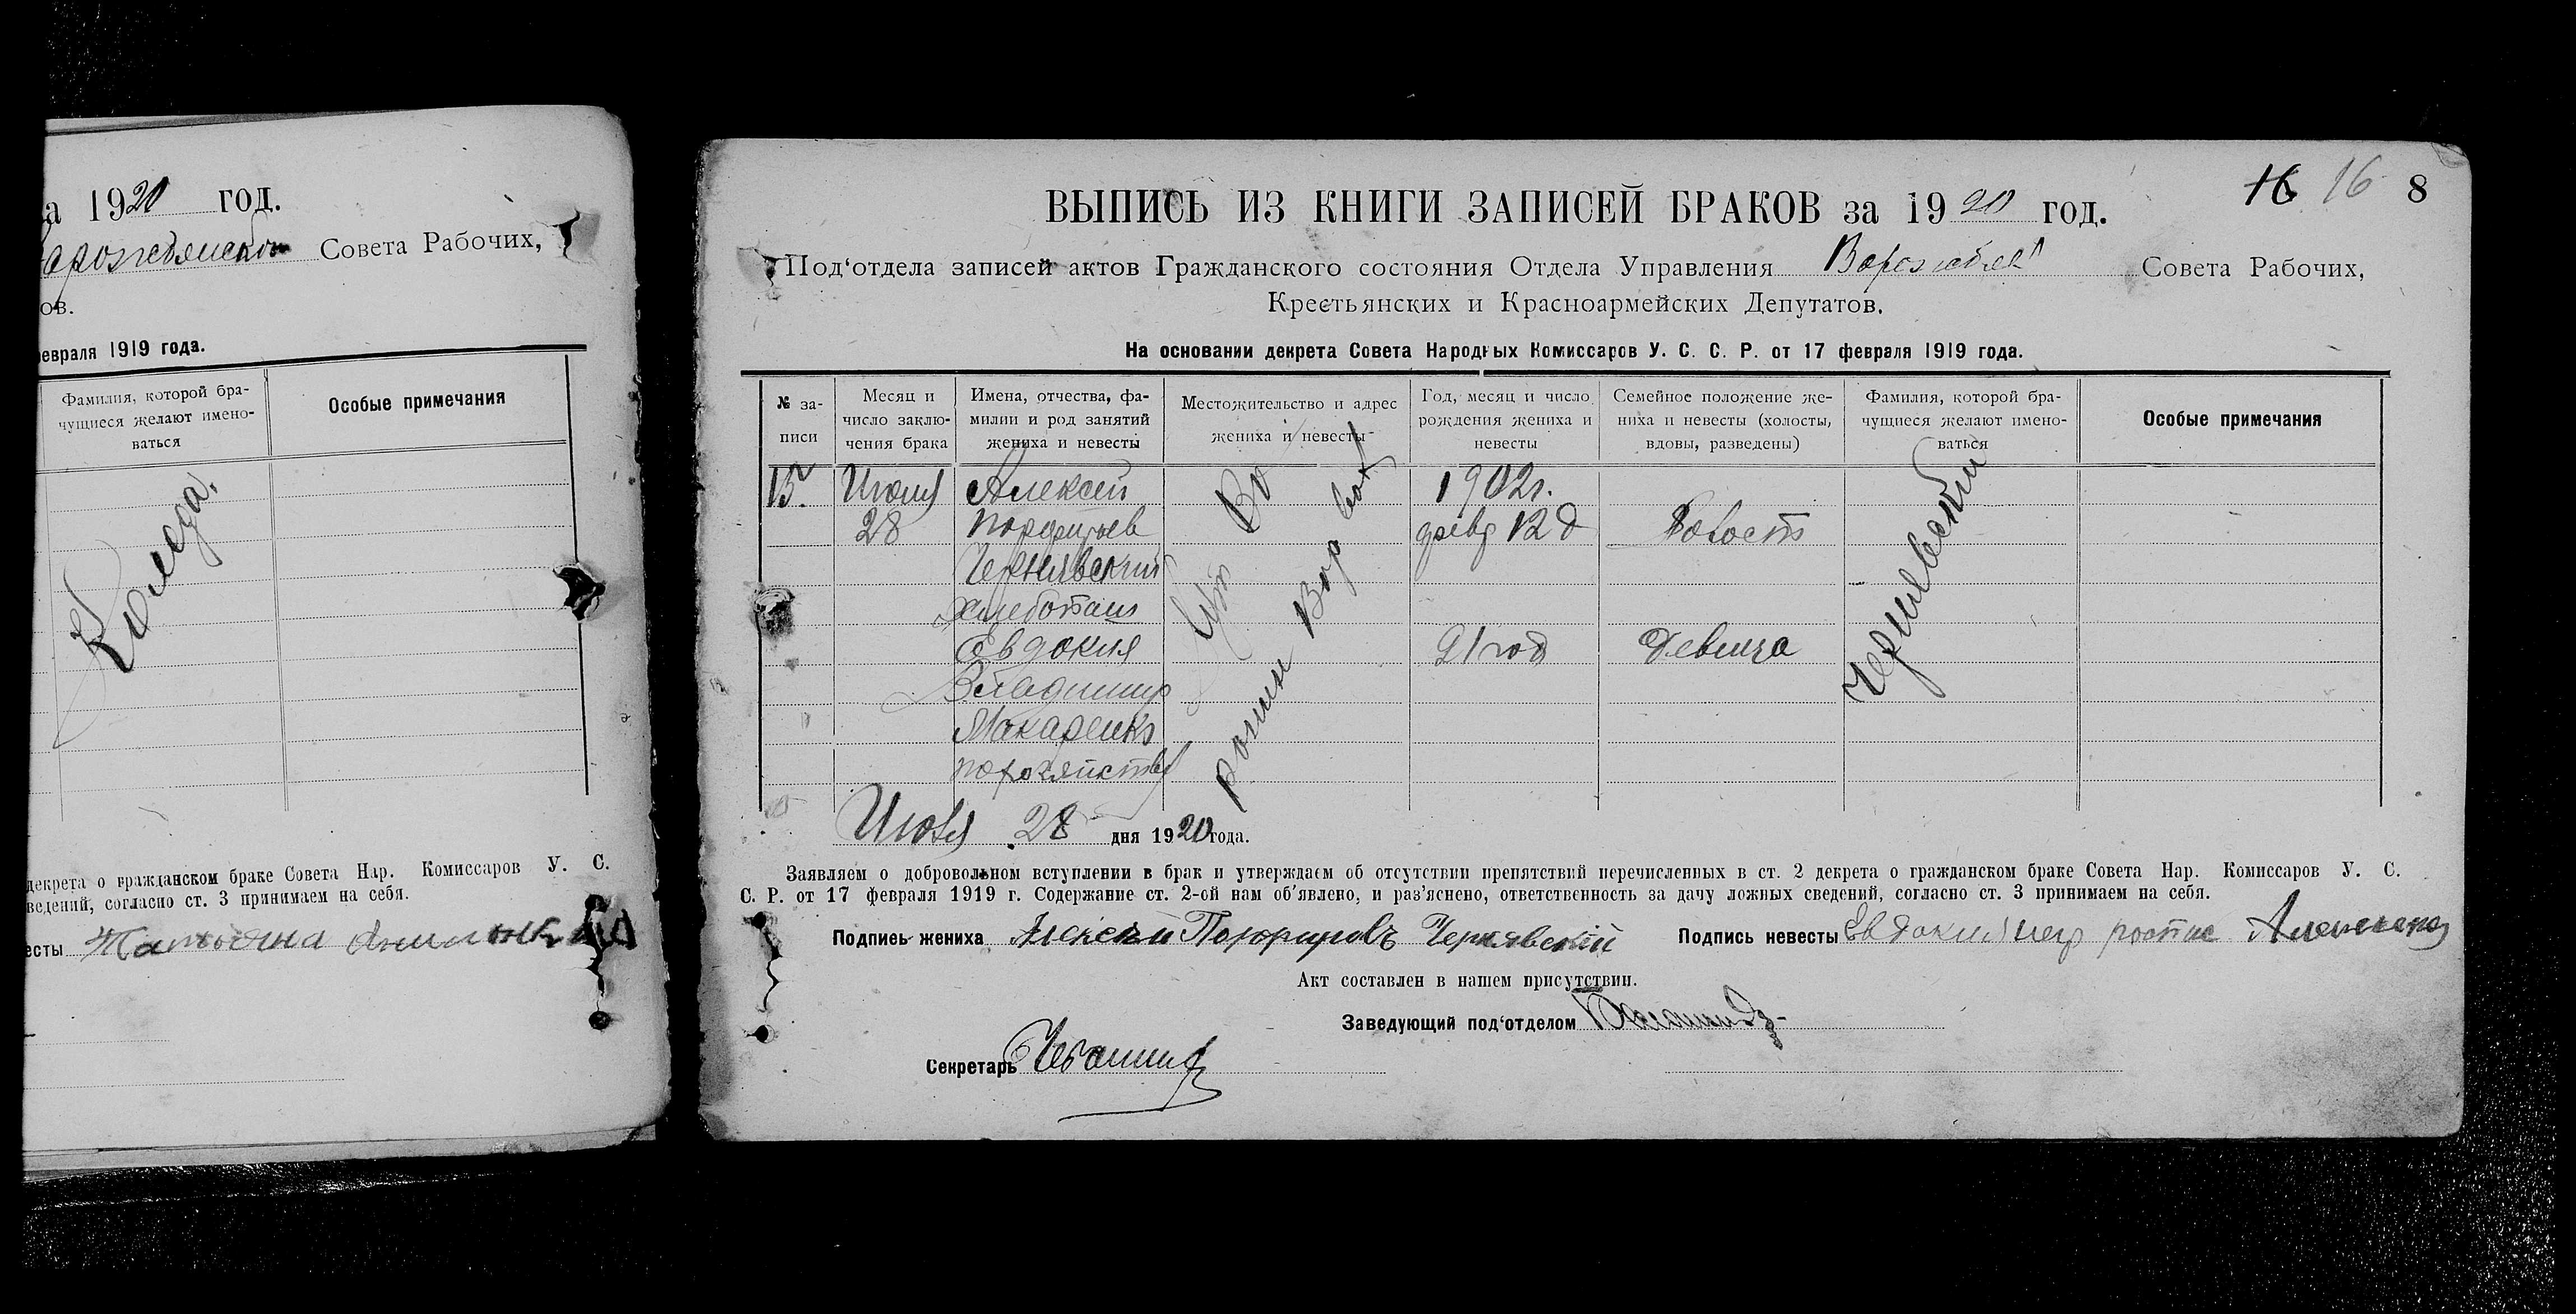 а 1920 год.
Совета Рабочих,
ов.
евраля 1919 года.
Фамилия, которой бра-
чущиеся желают имено-
ваться
Особые примечания
Коляда.
декрета о гражданском браке Совета Нар. Комиссаров У. С.
ведений, согласно ст. 3 принимаем на себя.
есты Татьяна
16 16 8
ВЫПИСЬ ИЗ КНИГИ ЗАПИСЕЙ БРАКОВ за 1920 год.
Под‘отдела записей актов Гражданского состояния Отдела Управления Ворожбян Совета Рабочих,
Крестьянских и Красноармейских Депутатов.
На основании декрета Совета Народных Комиссаров У. С. С. Р. от 17 февраля 1919 года.
№ за-
писи
Месяц и
число заклю-
чения брака
Имена, отчества, фа-
милии и род занятий
жениха и невесты
Местожительство и адрес
жениха и невесты
Год, месяц и число
рождения жениха и
невесты
Семейное положение же-
ниха и невесты (холосты,
вдовы, разведены)
Фамилия, которой бра-
чущиеся желают имено-
ваться
Особые примечания
Июля Алексей 1902г.
28 Порфирьев февр 12 д Холост
Чернявский
Хлебопаш
Евдокия 21 год Девица
Владимир
Макаренко
по хозяйству
Чернявский
Июля 28 дня 1920 года.
Заявляем о добровольном вступлении в брак и утверждаем об отсутствии препятствий перечисленных в ст. 2 декрета о гражданском браке Совета Нар. Комиссаров У. С.
С. Р. от 17 февраля 1919 г. Содержание ст. 2-ой нам об’явлено, и раз’яснено, ответственность за дачу ложных сведений, согласно ст. 3 принимаем на себя.
Подпись жениха Алексей Порфировъ Чернявский Подпись невесты Евдокия
Акт составлен в нашем присутствии.
Заведующий под‘отделом
Секретарь